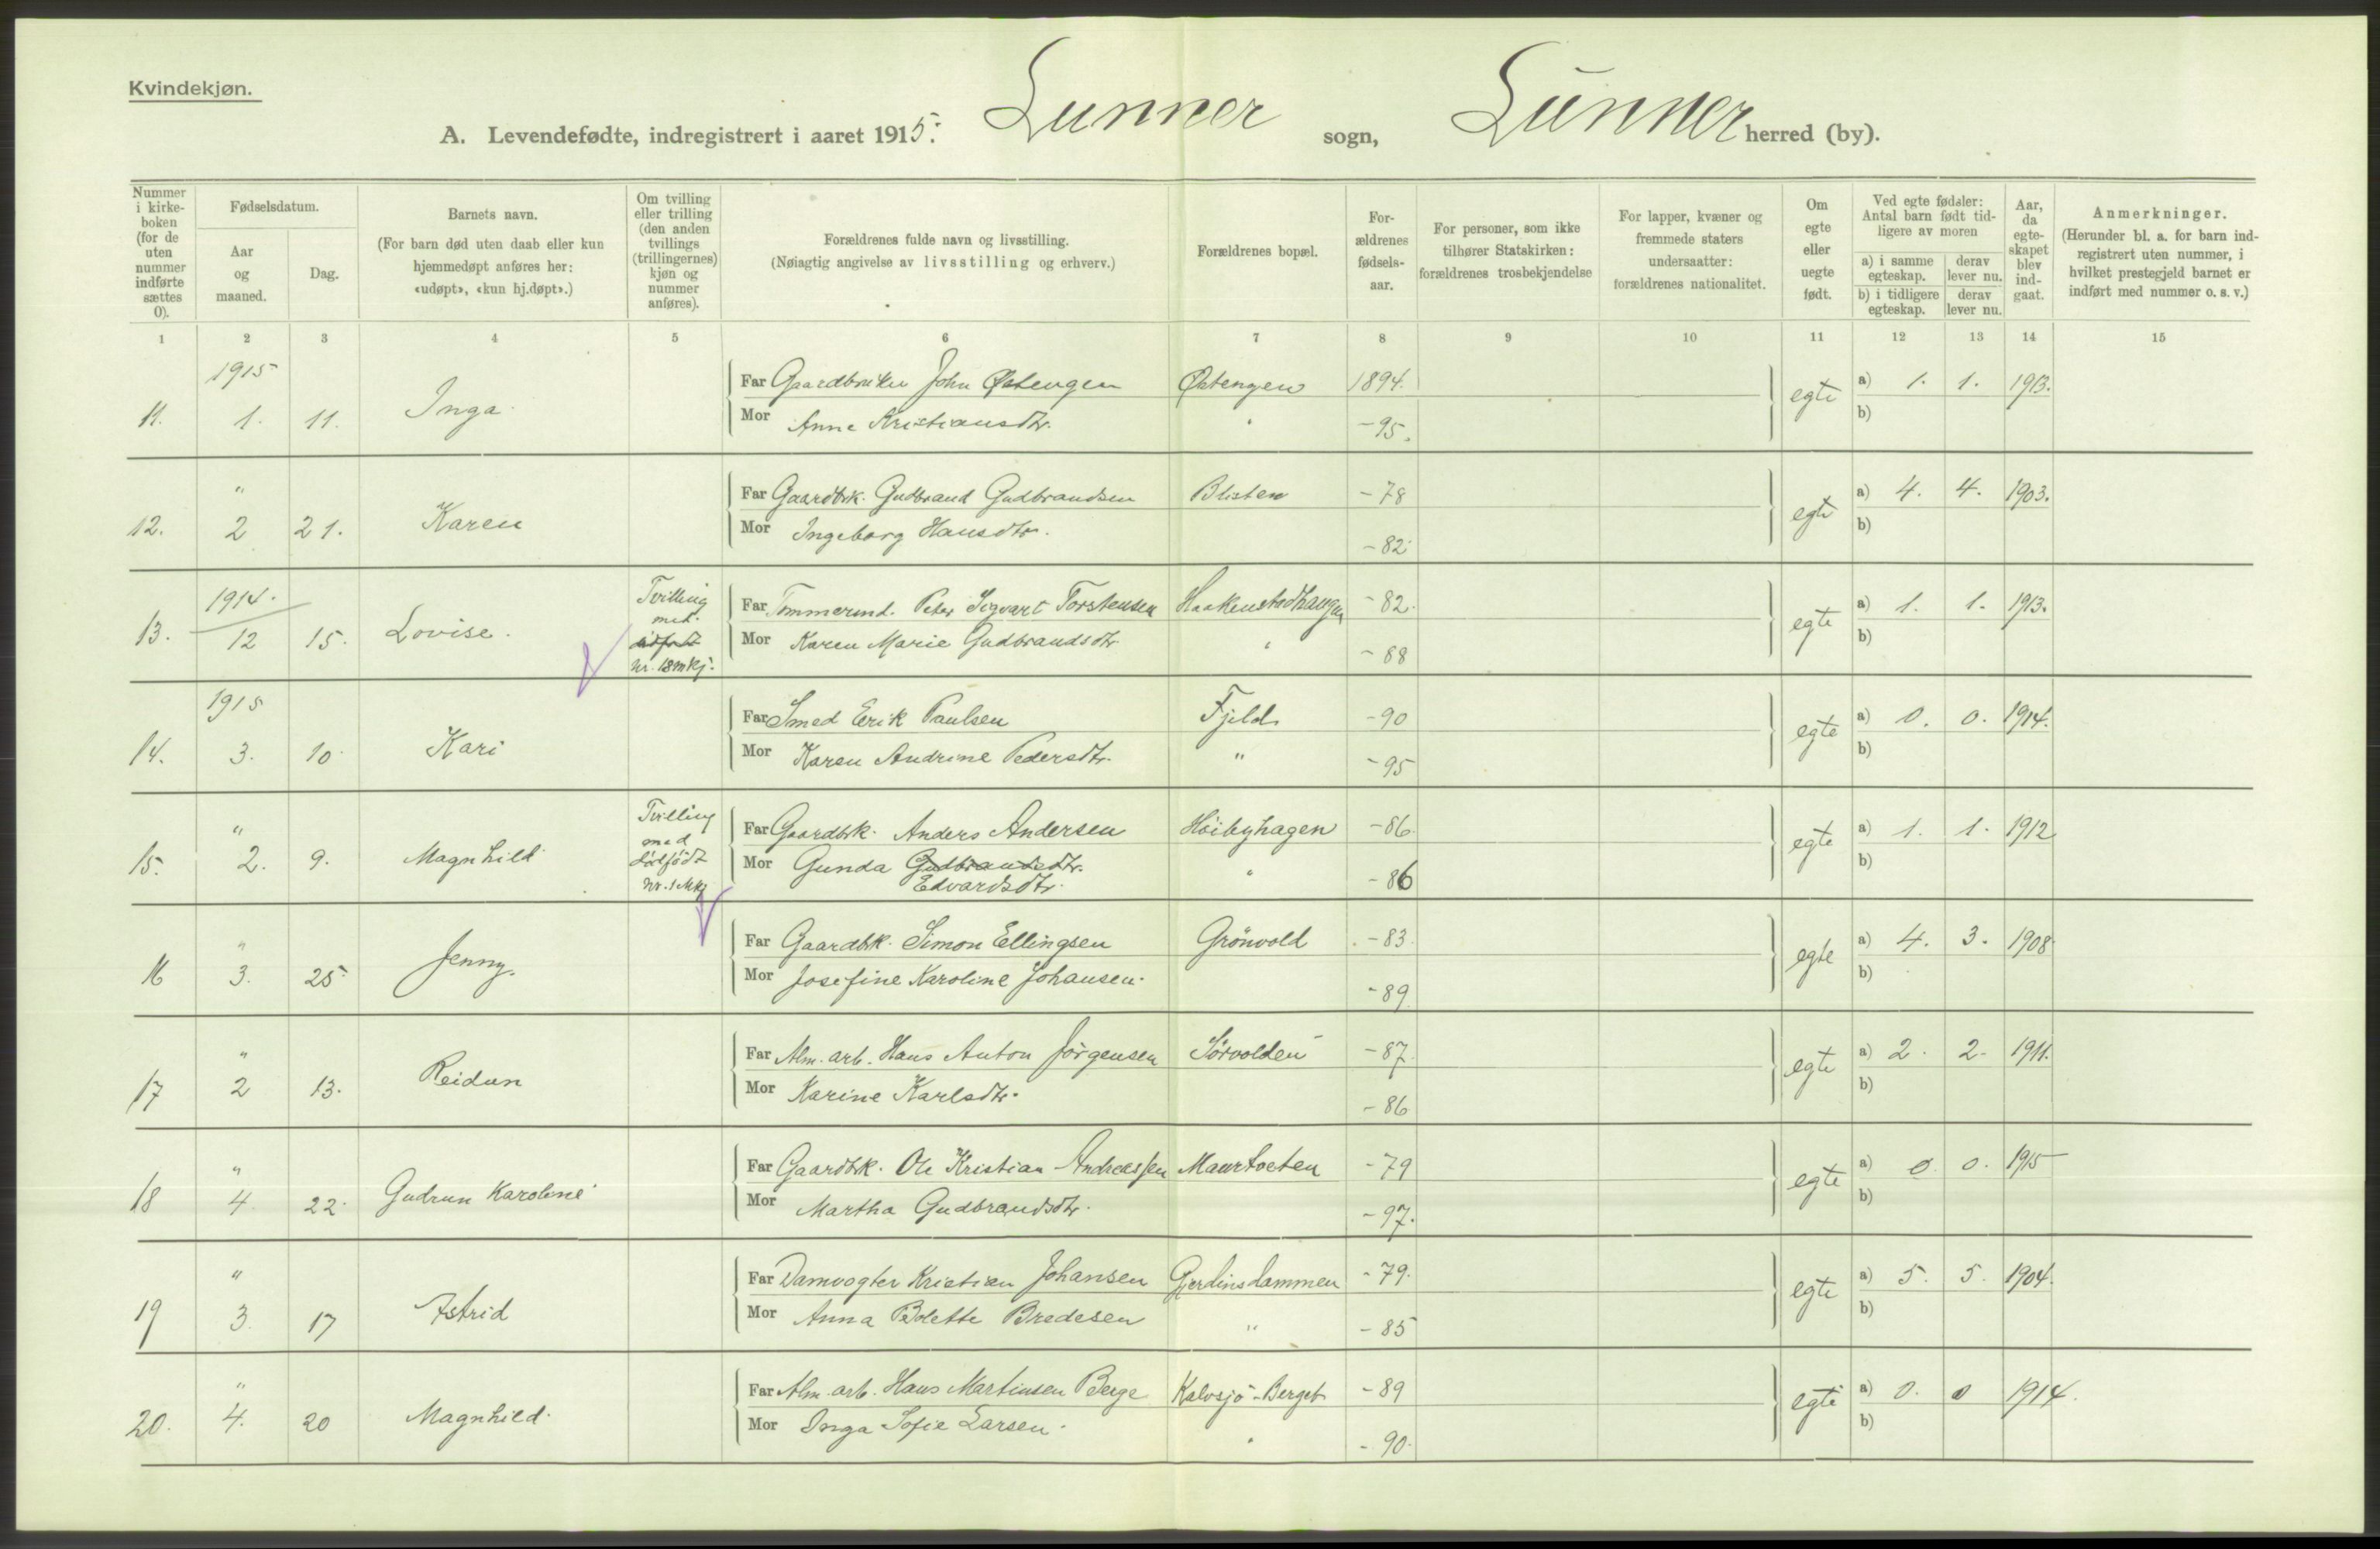 Kvindekjøn.
A. Levendefødte, indregistrert i aaret 1915. Lunner sogn, Lunner herred (by).
Nummer i kirkeboken (for de uten nummer indførte sættes 0).
Fødselsdatum.
Aar og maaned.
Dag.
Barnets navn.
(For barn død uten daab eller kun hjemmedøpt anføres her: «udøpt», «kun hj.døpt».)
Om tvilling eller trilling (den anden tvillings (trillingernes) kjøn og nummer anføres).
Forældrenes fulde navn og livsstilling.
(Nøiagtig angivelse av livsstilling og erhverv.)
Forældrenes bopæl.
Forældrenes fødselsaar.
For personer, som ikke tilhører Statskirken: forældrenes trosbekjendelse
For lapper, kvæner og fremmede staters undersaatter: forældrenes nationalitet.
Om egte eller uegte født.
Ved egte fødsler: Antal barn født tidligere av moren
a) i samme egteskap.
derav lever nu.
b) i tidligere egteskap.
derav lever nu.
Aar, da egteskapet blev indgaat.
Anmerkninger.
(Herunder bl. a. for barn indregistrert uten nummer, i hvilket prestegjeld barnet er indført med nummer o. s. v.)
1 2 3 4 5 6 7 8 9 10 11 12 13 14 15
1915
11. 1. 11. Inga. Far Gaardbruker John Østengen Østengen 1894. egte a) 1. 1. 1913.
Mor Anne Kristiansdtr. " -95. b)
"
12. 2 21. Karen Far Gaardbrk. Gudbrand Gudbrandsen Blisten -78 egte a) 4. 4. 1903.
Mor Ingeborg Hansdtr. -82 b)
1914.
13. 12 15. Lovise. Tvilling med nr. 18 mkj. Far Tømmermd. Peter Sigvart Torstensen Haakenstadhaugen -82. egte a) 1. 1. 1913.
Mor Karen Marie Gudbrandsdtr " -88 b)
1915
14. 3. 10. Kari Far Smed Erik Paulsen Fjeld. -90 egte a) 0. 0. 1914.
Mor Karen Andrine Pedersdtr. " -95 b)
"
15. 2. 9. Magnhild Tvilling med dødfødt nr. 1 Mkj Far Gaardbrk. Anders Andersen Høibyhagen -86. egte a) 1. 1. 1912
Mor Gunda Gudbrandsdtr. Edvardsdtr. " -86 b)
"
16 3. 25. Jenny. Far Gaardbrk. Simon Ellingsen Grönvold -83. egte a) 4. 3. 1908
Mor Josefine Karoline Johansen. -89. b)
"
17 2 13. Reidun Far Alm. arb. Hans Anton Jörgensen Sörvolden -87. egte a) 2. 2. 1911.
Mor Karine Karlsdtr. -86 b)
"
18 4 22. Gudrun Karoline Far Gaardbrk. Ole Kristian Andreassen Maurtveten -79 egte a) 0. 0. 1915
Mor Martha Gudbrandsdtr. -97. b)
"
19 3. 17 Astrid Far Damvogter Kristian Johansen Gjerdinsdammen -79. egte a) 5. 5. 1904.
Mor Anna Bolette Bredesen " -85 b)
"
20. 4. 20 Magnhild. Far Alm. arb. Hans Martinsen Berge Kalvsjö-Berget -89 egte a) 0. 0 1914.
Mor Inga Sofie Larsen. " -90. b)